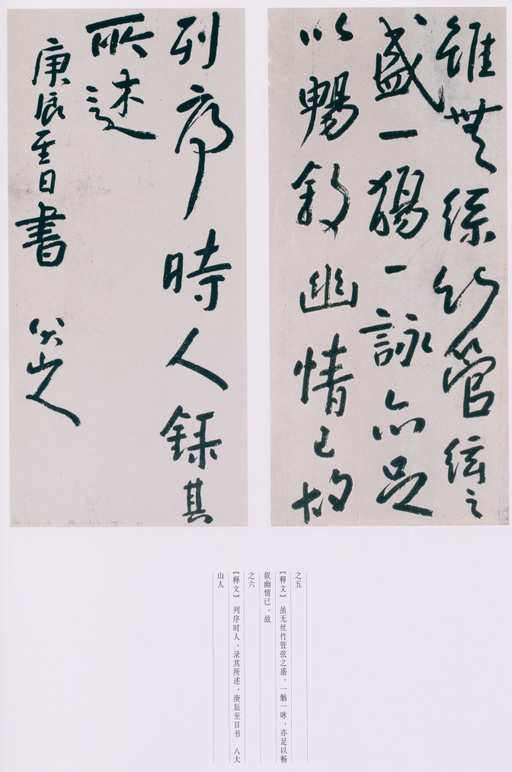 雖無絲竹管絃之
盛一觴一詠亦足
以暢敘幽情已故
列序時人錄其
所述
庚辰至日書 八大山人
之五
【释文】 虽无丝竹管弦之盛，一觞一咏，亦足以畅
叙幽情已，故
之六
【释文】 列序时人，录其所述。庚辰至日书 八大
山人